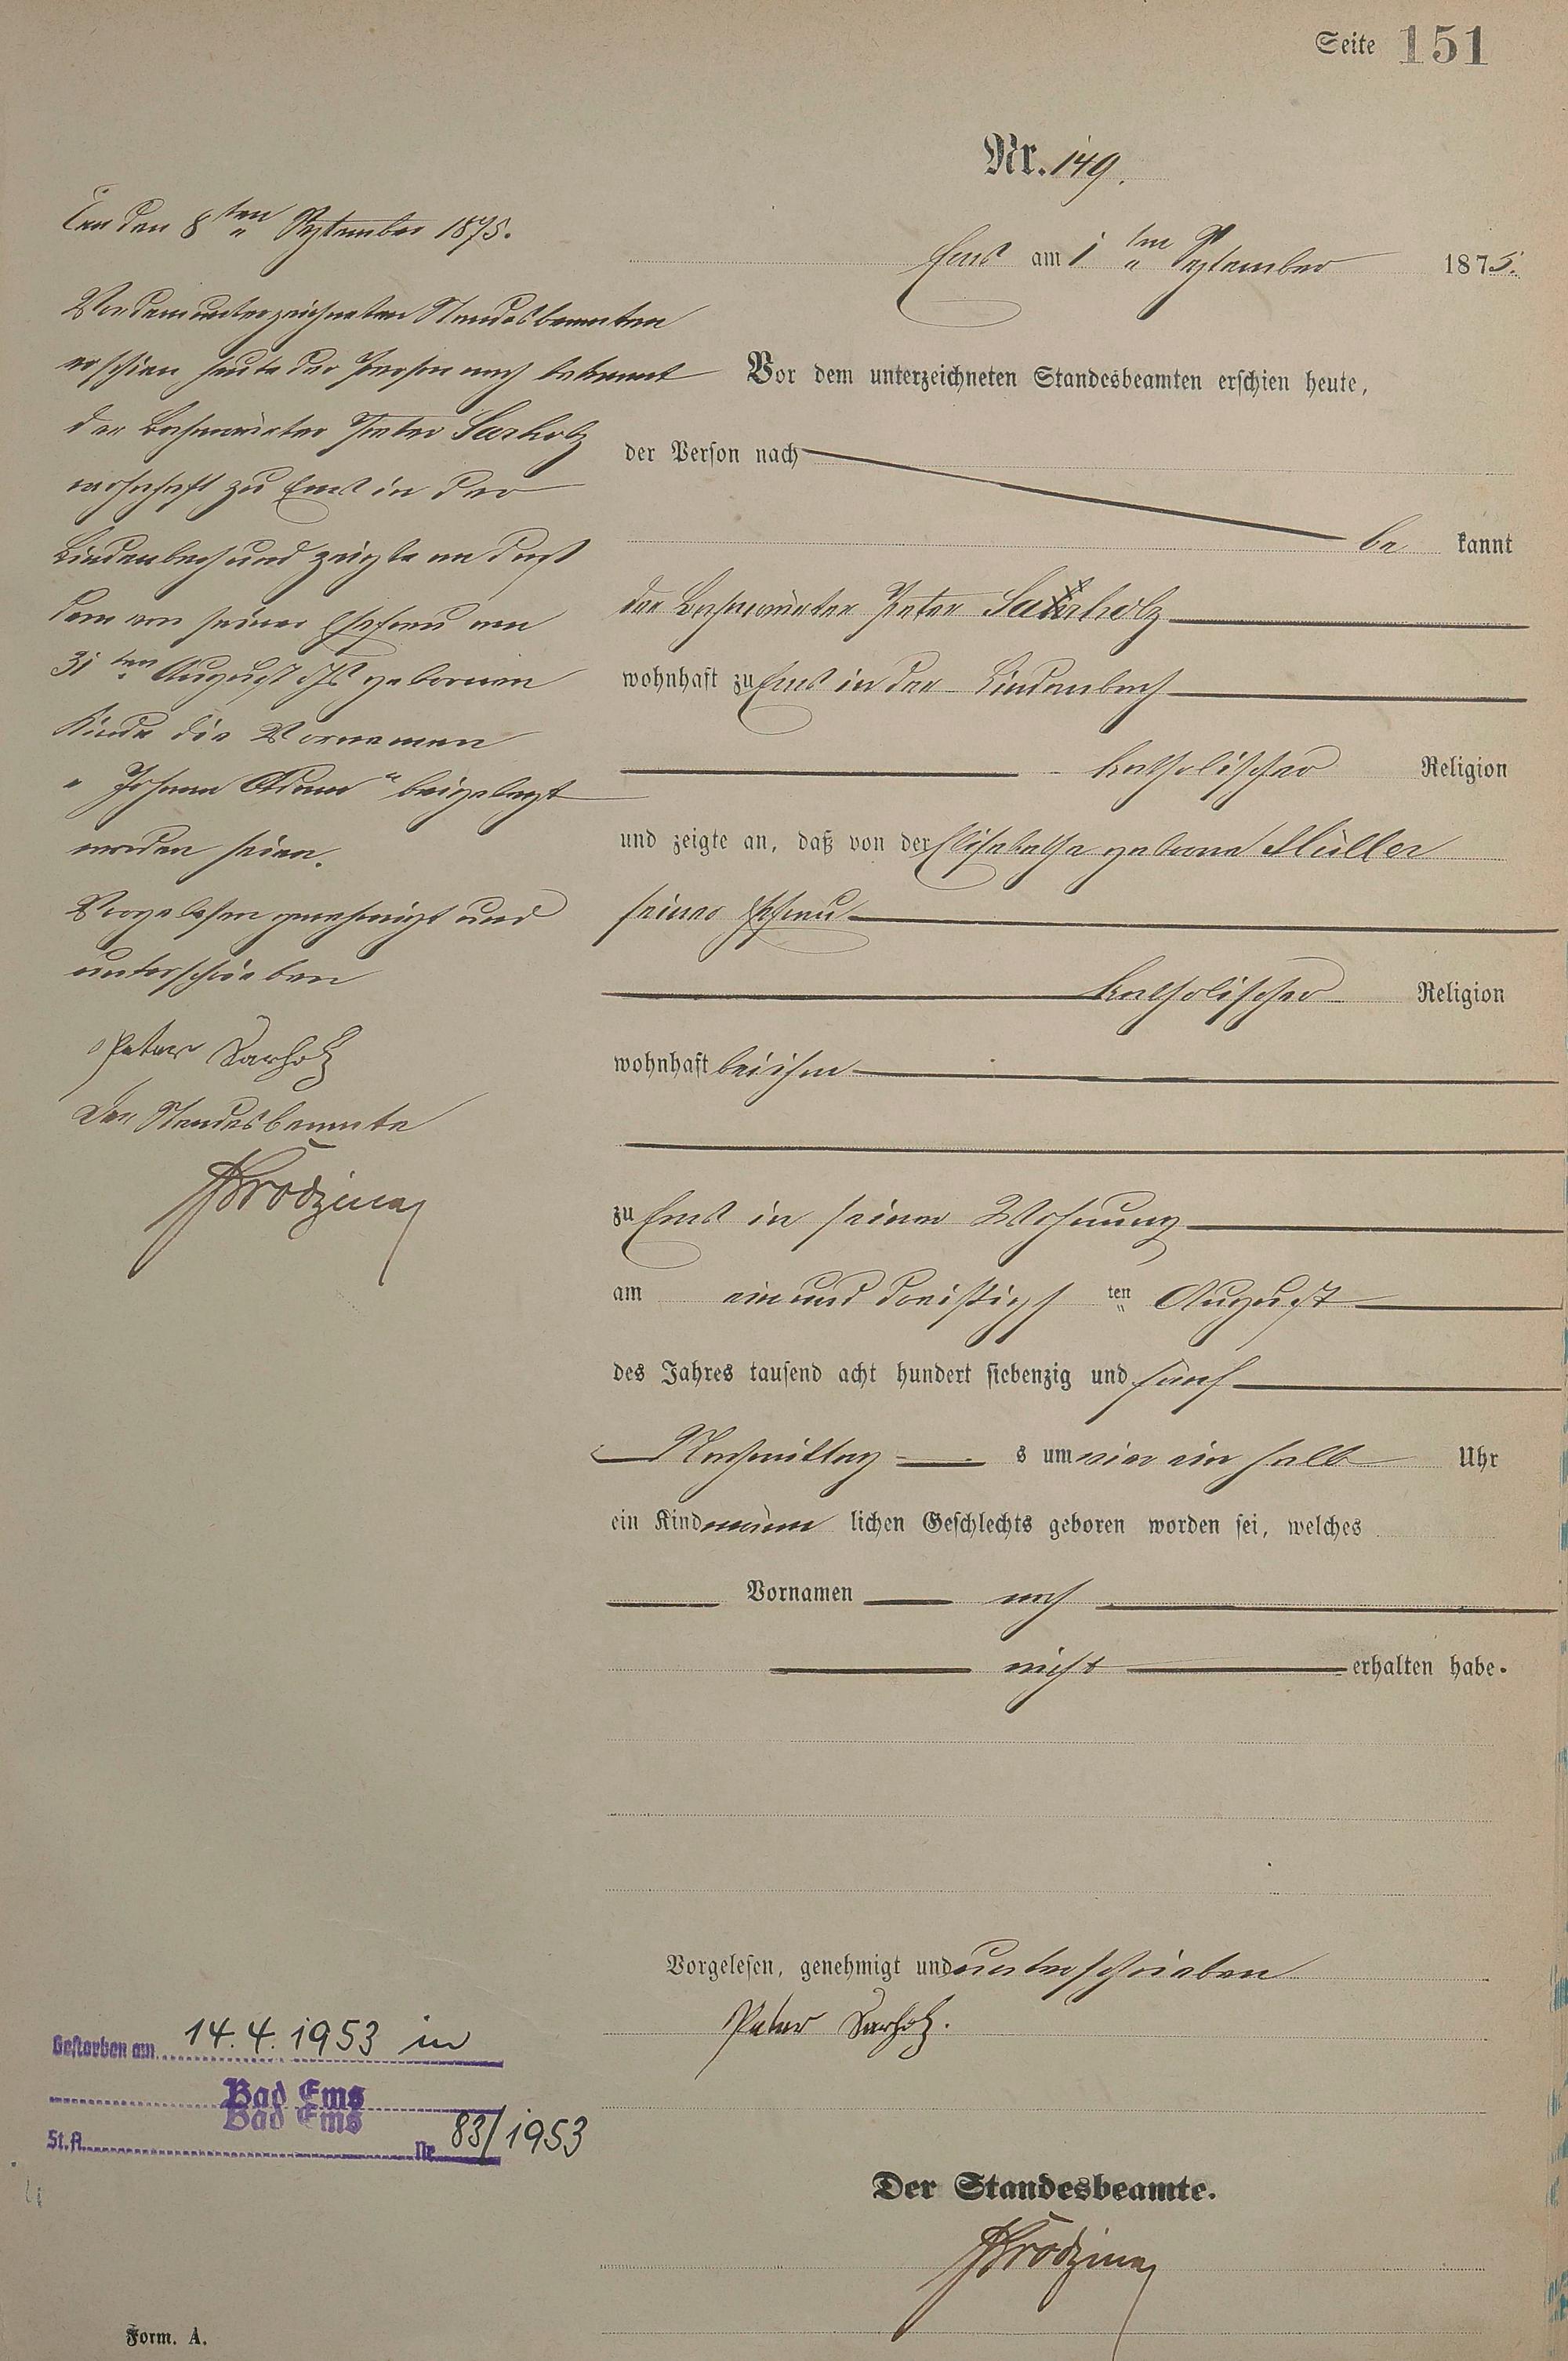 Seite 151
Nr. 149.
Ems am 1 ten September 1875.
Vor dem unterzeichneten Standesbeamten erschien heute,
der Person nach
be kannt
der Bahnwärter Peter Sarholz
wohnhaft zu Ems in der Lindenbach
katholischer Religion
und zeigte an, daß von der Elisabetha geborne Müller
seiner Ehefrau
katholischer Religion
wohnhaft bei ihm
zu Ems in seiner Wohnung
am ein und dreißigs ten August
des Jahres tausend acht hundert siebenzig und fünf
Nachmittag s um vier ein halb Uhr
ein Kind männ lichen Geschlechts geboren worden sei, welches
Vornamen noch
nicht erhalten habe.
Vorgelesen, genehmigt und unterschrieben
Peter Sarholz.
Der Standesbeamte.
Ems den 8ten September 1875.
Vor dem unterzeichneten Standesbeamten
erschien heute der Person nach bekannt
der Bahnwärter Peter Sarholz
wohnhaft zu Ems in der
Lindenbach und zeigte an daß
dem von seiner Ehefrau am
31ten August d Js gebornen
Kinde die Vornamen
„Johann Adam“ beigelegt
worden seien.
Vorgelesen genehmigt und
unterschrieben
Peter Sarholz
Der Standesbeamte
Gestorben am 14.4.1953 in
Bad Ems
Bad Ems
St.A. Nr. 83/1953
Form. A.